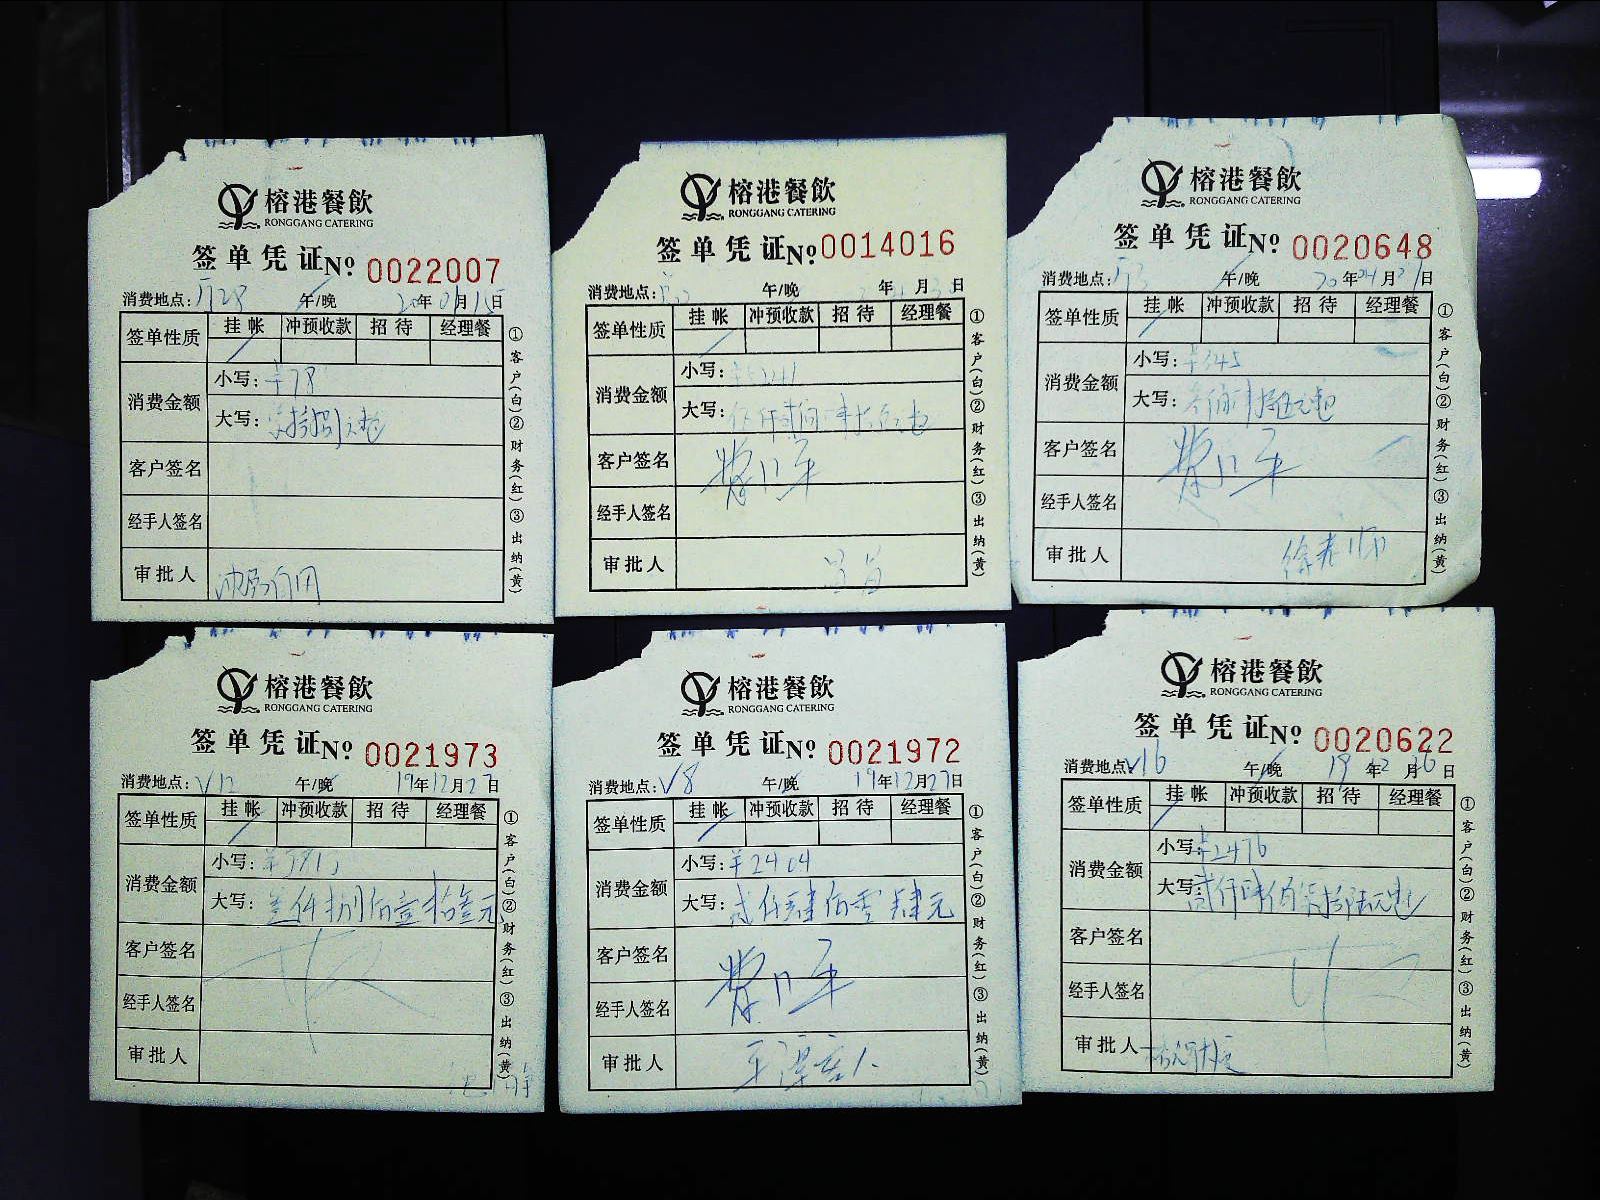 榕港餐飲
RONGGANG CATERING
签单凭证 No 0022007
消费地点: 28 午/晚 20年01月15日
签单性质 挂帐 冲预收款 招待 经理餐
消费金额
小写: ¥78
大写: 柒拾捌元
客户签名
经手人签名
审批人
①客户(白)②财务(红)③出纳(黄)
榕港餐飲
RONGGANG CATERING
签单凭证 No 0014016
消费地点: 午/晚 年 月 日
签单性质 挂帐 冲预收款 招待 经理餐
消费金额
小写:
大写:
客户签名
经手人签名
审批人
①客户(白)②财务(红)③出纳(黄)
榕港餐飲
RONGGANG CATERING
签单凭证 No 0020648
消费地点: 午/晚 20年04月 日
签单性质 挂帐 冲预收款 招待 经理餐
消费金额
小写: ¥345
大写: 叁佰肆拾伍元
客户签名
经手人签名
审批人 徐
①客户(白)②财务(红)③出纳(黄)
榕港餐飲
RONGGANG CATERING
签单凭证 No 0021973
消费地点: V12 午/晚 19年12月27日
签单性质 挂帐 冲预收款 招待 经理餐
消费金额
小写: ¥3813
大写: 叁仟捌佰壹拾叁元
客户签名
经手人签名
审批人
①客户(白)②财务(红)③出纳(黄)
榕港餐飲
RONGGANG CATERING
签单凭证 No 0021972
消费地点: V8 午/晚 19年12月27日
签单性质 挂帐 冲预收款 招待 经理餐
消费金额
小写: ¥2404
大写: 贰仟肆佰零肆元
客户签名
经手人签名
审批人 平潭客人
①客户(白)②财务(红)③出纳(黄)
榕港餐飲
RONGGANG CATERING
签单凭证 No 0020622
消费地点: V16 午/晚 19年12月16日
签单性质 挂帐 冲预收款 招待 经理餐
消费金额
小写: ¥2476
大写: 贰仟肆佰柒拾陆元
客户签名
经手人签名
审批人
①客户(白)②财务(红)③出纳(黄)